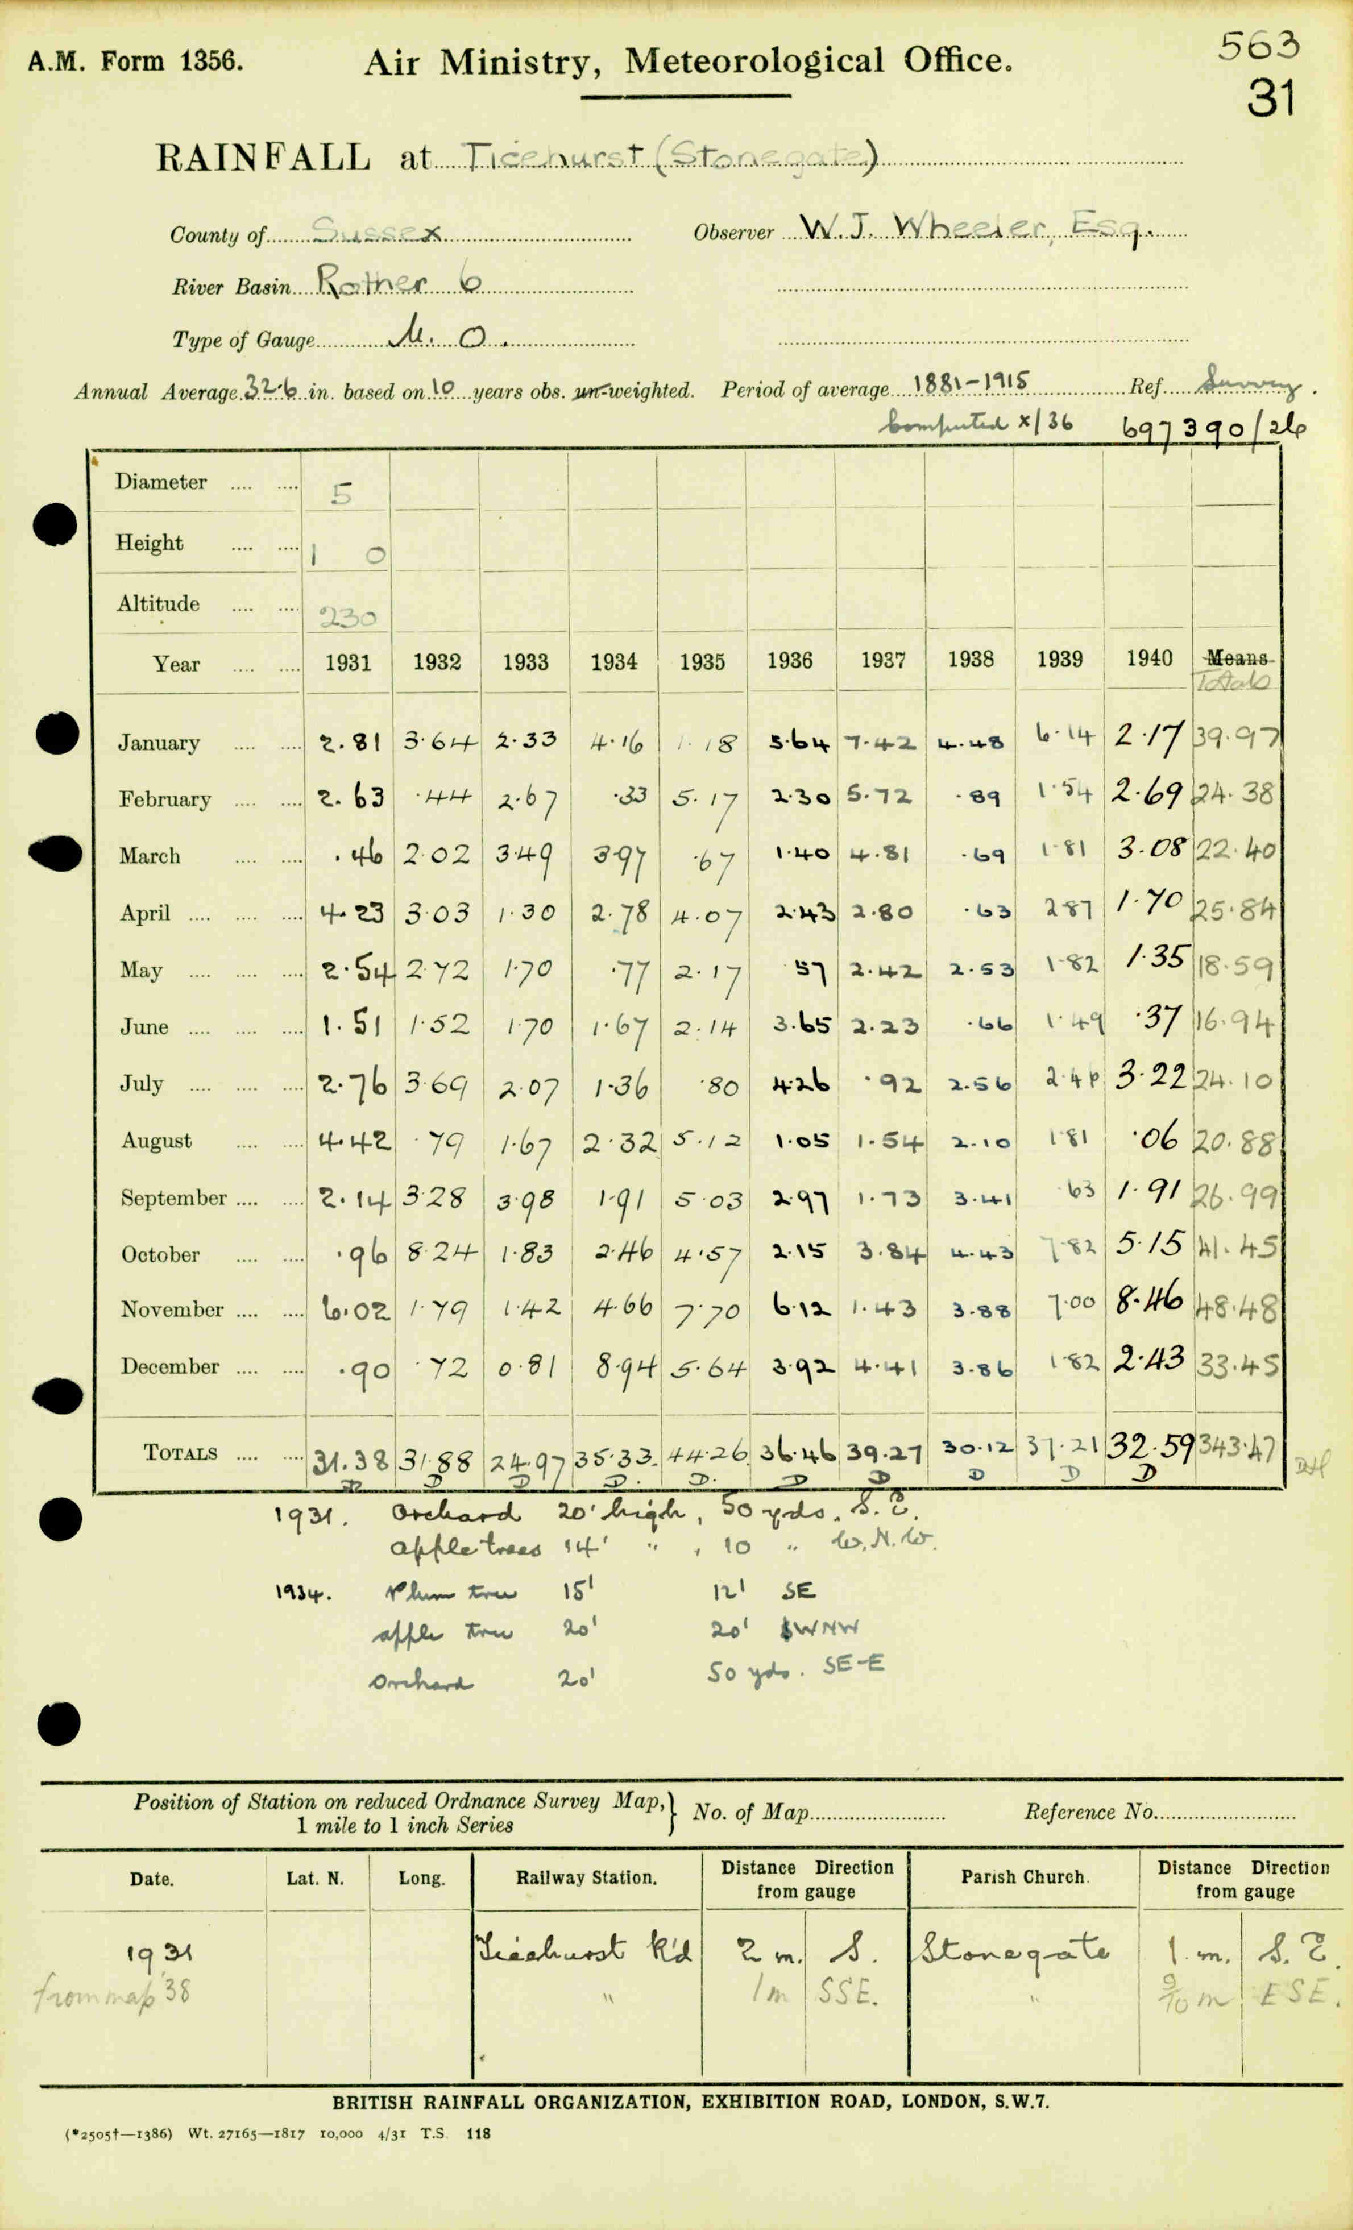 A.M. Form 1356.
Air Ministry, Meteorological Office.
563
31
RAINFALL at Ticehurst (Stonegate)
County of Sussex Observer W.J. Wheeler, Esq.
River Basin Rother 6
Type of Gauge M. O.
Annual Average 32.6 in. based on 10 years obs. un-weighted. Period of average 1881-1915 Ref. Survey.
Computed x/36 697390/26
Diameter .... .... 5
Height .... .... 1 0
Altitude .... .... 230
Year .... .... 1931 1932 1933 1934 1935 1936 1937 1938 1939 1940 Means
Totals
January .... .... 2.81 3.64 2.33 4.16 1.18 5.64 7.42 4.48 6.14 2.17 39.97
February .... .... 2.63 .44 2.67 .33 5.17 2.30 5.72 .89 1.54 2.69 24.38
March .... .... .46 2.02 3.49 3.97 .67 1.40 4.81 .69 1.81 3.08 22.40
April .... .... .... 4.23 3.03 1.30 2.78 4.07 2.43 2.80 .63 2.87 1.70 25.84
May .... .... .... 2.54 2.72 1.70 .77 2.17 .57 2.42 2.53 1.82 1.35 18.59
June .... .... .... 1.51 1.52 1.70 1.67 2.14 3.65 2.23 .66 1.49 .37 16.94
July .... .... .... 2.76 3.69 2.07 1.36 .80 4.26 .92 2.56 2.46 3.22 24.10
August .... .... 4.42 .79 1.67 2.32 5.12 1.05 1.54 2.10 1.81 .06 20.88
September .... .... 2.14 3.28 3.98 1.91 5.03 2.97 1.73 3.41 .63 1.91 26.99
October .... .... .96 8.24 1.83 2.46 4.57 2.15 3.84 4.43 7.82 5.15 41.45
November .... .... 6.02 1.79 1.42 4.66 7.70 6.12 1.43 3.88 7.00 8.46 48.48
December .... .... .90 .72 0.81 8.94 5.64 3.92 4.41 3.86 1.82 2.43 33.45
TOTALS .... .... 31.38 31.88 24.97 35.33 44.26 36.46 39.27 30.12 37.21 32.59 343.47
D D D D D D D D D D
1931. Orchard 20' high, 50 yds. S.E.
apple trees 14' " , 10 " W.N.W.
1934. Plum tree 15' 12' SE
apple tree 20' 20' WNW
Orchard 20' 50 yds. SE-E
Position of Station on reduced Ordnance Survey Map, 1 mile to 1 inch Series } No. of Map Reference No.
Date. Lat. N. Long. Railway Station. Distance Direction from gauge Parish Church. Distance Direction from gauge
1931 Ticehurst R'd 2 m. S. Stonegate 1 m. S.E.
from map '38 " 1m SSE. " 9/10 m ESE.
BRITISH RAINFALL ORGANIZATION, EXHIBITION ROAD, LONDON, S.W.7.
(*2505†—1386) Wt. 27165—1817 10,000 4/31 T.S. 118